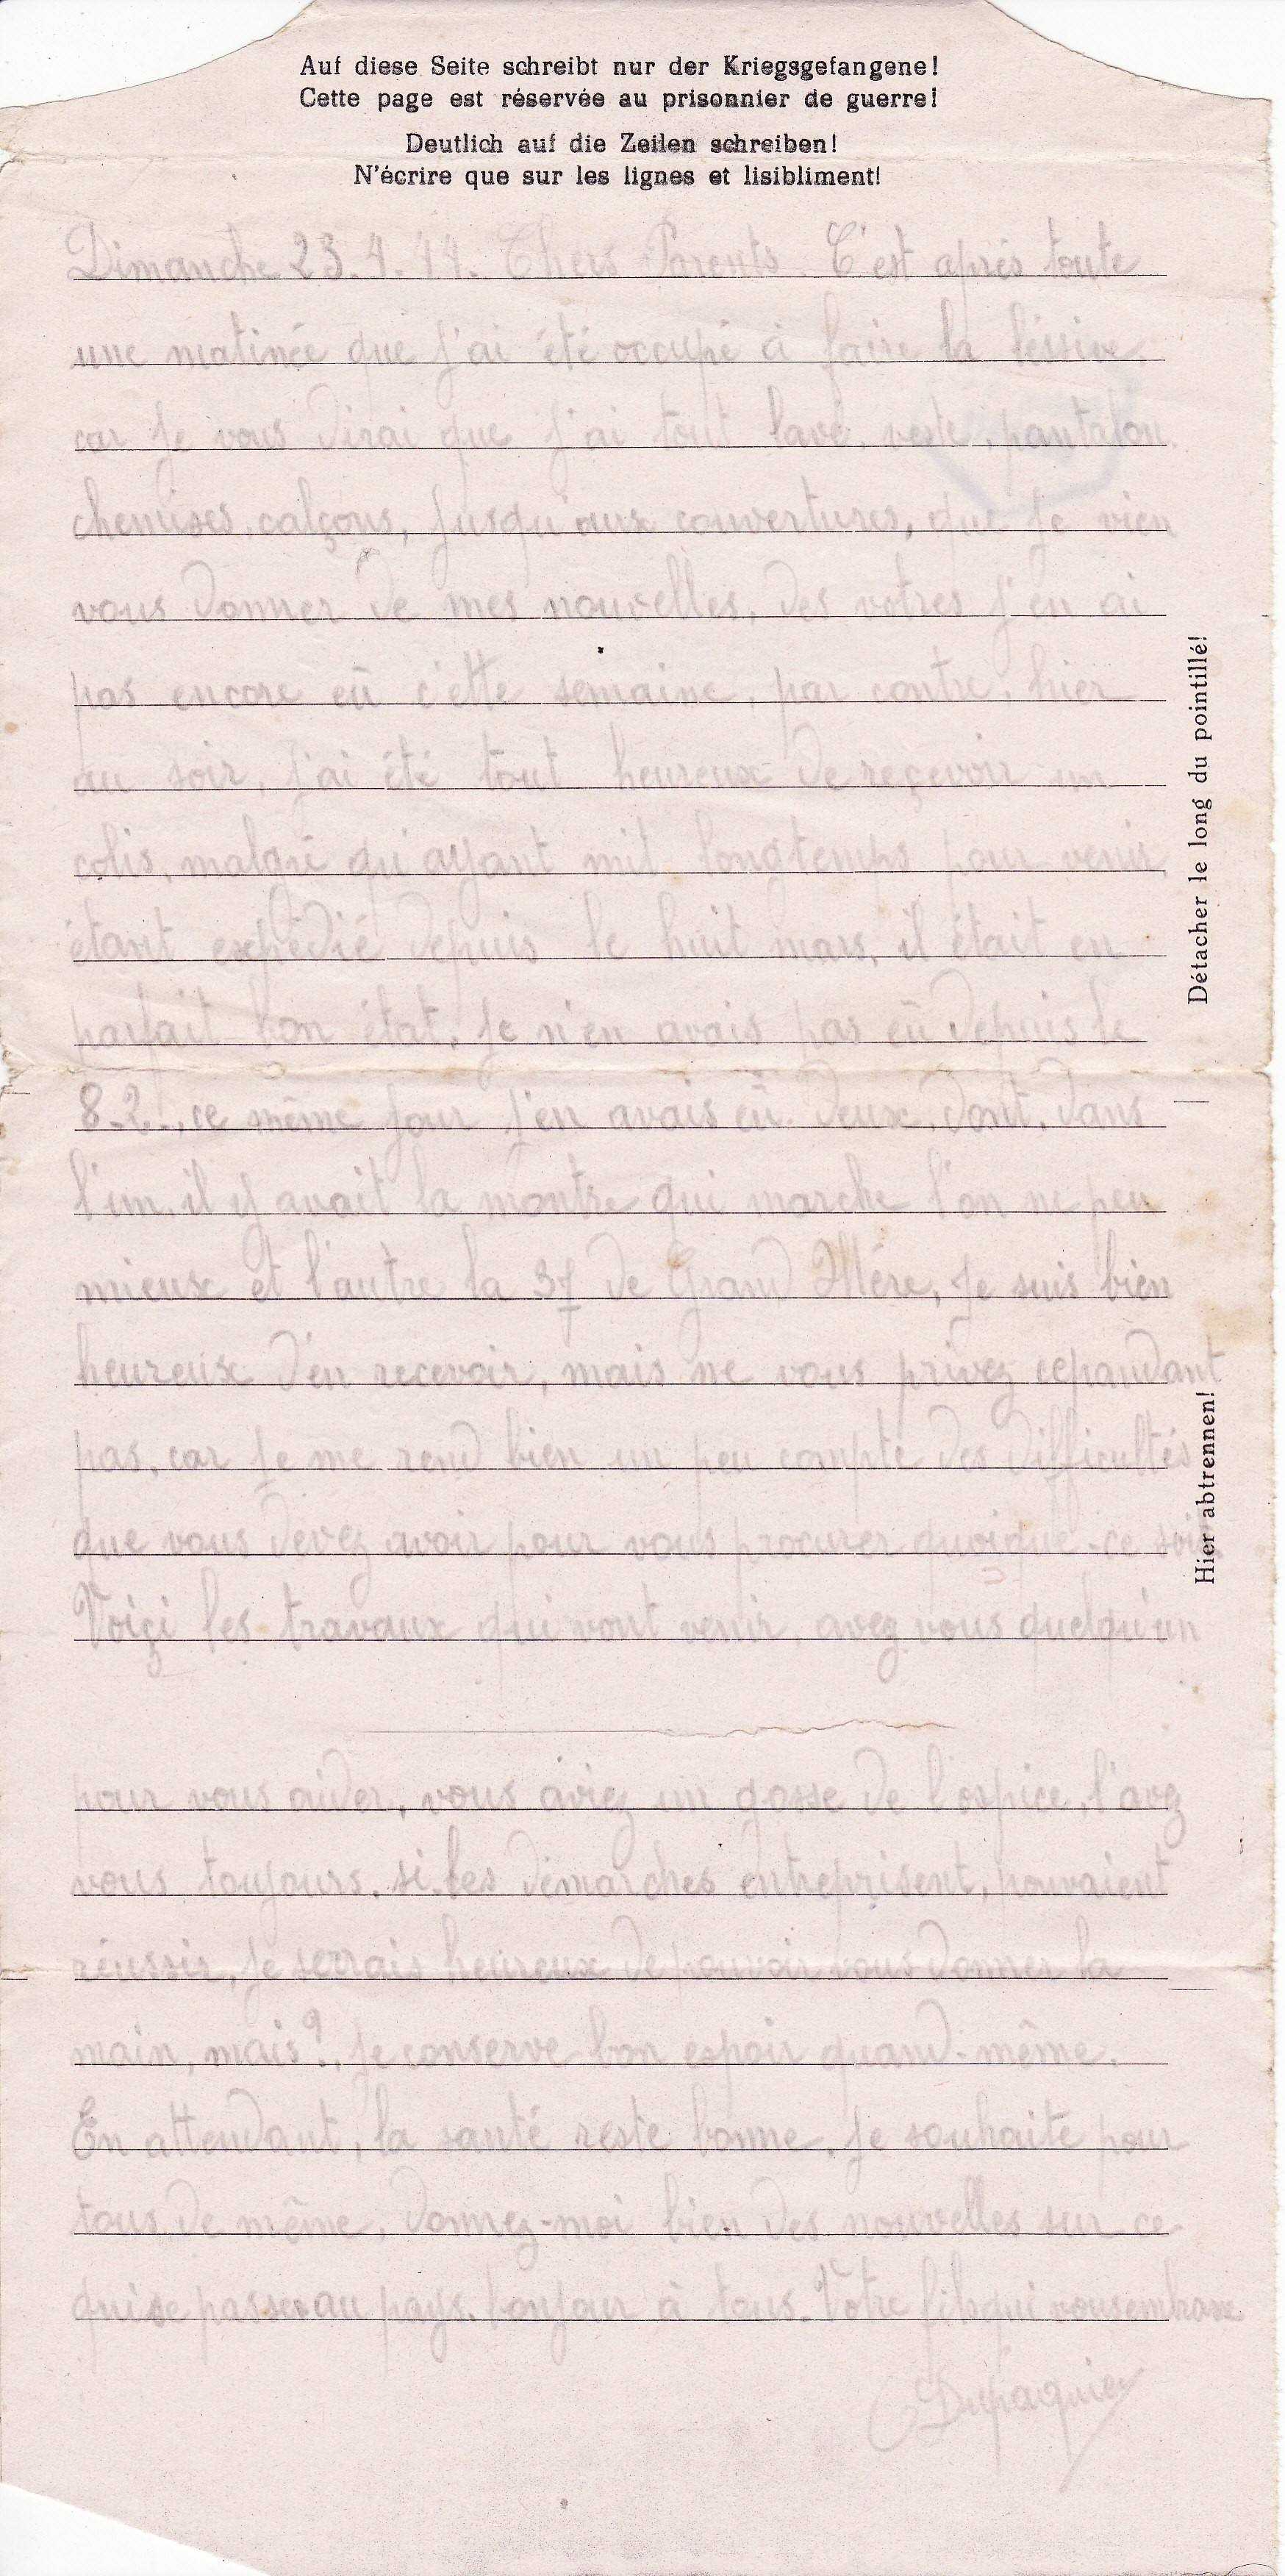 Auf diese Seite schreibt nur der Kriegsgefangene!
Cette page est réservée au prisonnier de guerre!
Deutlich auf die Zeilen schreiben!
N'écrire que sur les lignes et lisibliment!
Dimanche 23.4.44. Chers Parents. C'est après toute
une matinée que j'ai été occupé à faire la lessive,
car je vous dirai que j'ai tout lavé, veste, pantalon.
chemises, calçons, jusqu'aux couvertures, que je vien
vous donner de mes nouvelles, des votres j'en ai
pas encore eû c'ette semaine, par contre, hier
au soir, j'ai été tout heureux de reçevoir un
colis, malgré qu'ayant mit longtemps pour venir,
étant expédié depuis le huit mars, il était en
parfait bon état, je n'en avais pas eû depuis le
8-2-, ce même jour j'en avais eû deux, dont, dans
l'un, il y avait la montre qui marche l'on ne peu
mieux et l'autre la 37 de Grand Mère, je suis bien
heureux d'en recevoir, mais ne vous privez cepandant
pas, car je me rend bien un peu compte des difficultés
que vous devez avoir pour vous procurer quoique-ce soit.
Voiçi les travaux qui vont venir, avez vous quelqu'un
pour vous aider, vous aviez un gosse de l'ospice, l'avez
vous toujours, si les démarches entreprisent, pouvaient
réussir, je serrais heureux de pouvoir vous donner la
main, mais?, je conserve bon espoir quand-même.
En attendant, la santé reste bonne, je souhaite pour
tous de même, donnez-moi bien des nouvelles sur ce
qui se passe au pays, bonjour à tous. Votre fils qui vous embrasse
Dupaquier
Détacher le long du pointillé!
Hier abtrennen!